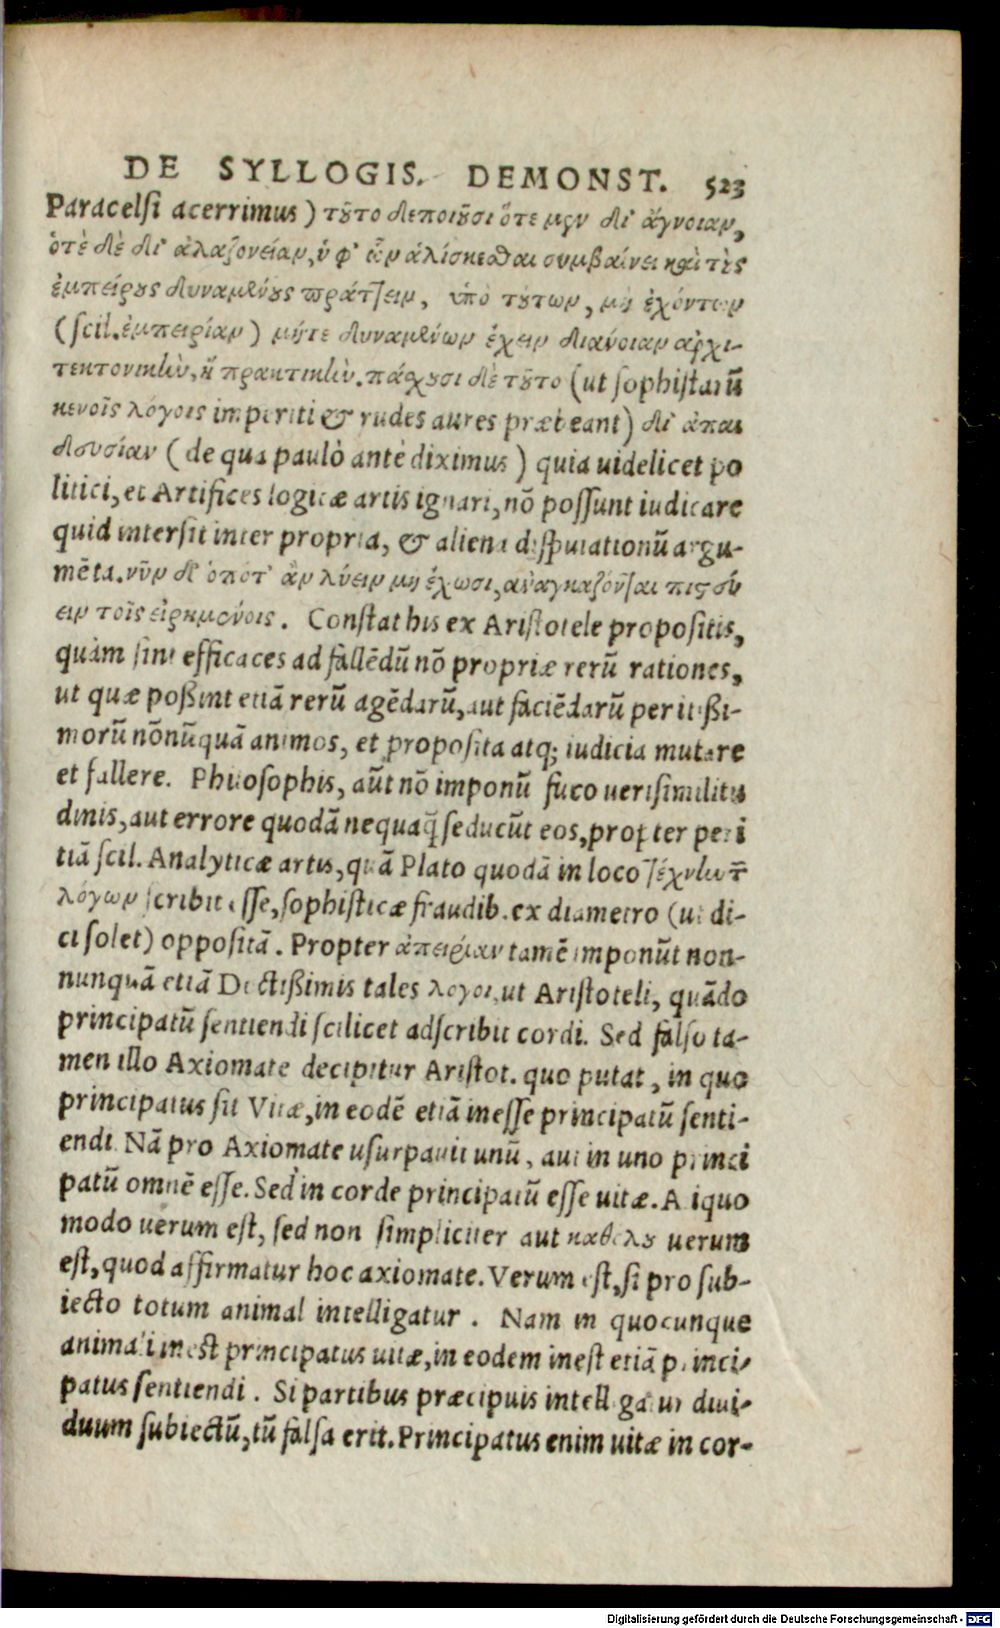 DE SYLLOGIS. DEMONST. 523
Paracelsi acerrimus) τȣ͂το δεποιȣ͂σι ὅτε μϟν δι' ἄγνοιαν,
ὁτὲ δὲ δι' ἀλαζονείαν, ὑφ' ὧν ἁλίσκεσθαι συμβαίνει καὶ τȣ̀ς
ἐμπείρȣς δυναμένȣς πράττειν, ὑπὸ τȣ́των, μὴ ἐχόντων
(scil. ἐμπειρίαν) μήτε δυναμένων ἔχειν διάνοιαν ἀρχι-
τεκτονικὴν, ἢ πρακτικὴν. πάσχȣσι δὲ τȣ͂το (ut sophistarū
κενοῖς λόγοις imperiti & rudes aures præbeant) δι' ἀπαι
δευσίαν (de qua paulò antè diximus) quia uidelicet po
litici, et Artifices logicæ artis ignari, nō possunt iudicare
quid intersit inter propria, & aliena disputationū argu-
mēta. νῦν δ' ὁπότ' ἂν λύειν μὴ ἔχωσι, ἀναγκαζόνται πιστεύ
ειν τοῖς εἰρημένοις. Constat his ex Aristotele propositis,
quàm sint efficaces ad fallēdū nō propriæ rerū rationes,
ut quæ poßint etiā rerū agēdarū, aut faciēdarū peritißi-
morū nōnūquā animos, et proposita atq; iudicia mutare
et fallere. Philosophis, aūt nō imponū fuco uerisimilitu
dinis, aut errore quodā nequaq̃ seducūt eos, propter peri
tiā scil. Analyticæ artis, quā Plato quodā in loco τέχνὴν τ͂
λόγων scribit esse, sophisticæ fraudib. ex diametro (ut di-
ci solet) oppositā. Propter ἀπειρίαν tamē imponūt non-
nunquā etiā Doctißimis tales λογοι, ut Aristoteli, quādo
principatū sentiendi scilicet adscribit cordi. Sed falso ta-
men illo Axiomate decipitur Aristot. quo putat, in quo
principatus sit Vitæ, in eodē etiā inesse principatū senti-
endi. Nā pro Axiomate usurpauit unū, aut in uno princi
patū omnē esse. Sed in corde principatū esse uitæ. Aliquo
modo uerum est, sed non simpliciter aut καθολȣ uerum
est, quod affirmatur hoc axiomate. Verum est, si pro sub-
iecto totum animal intelligatur. Nam in quocunque
animali inest principatus uitæ, in eodem inest etiā princi-
patus sentiendi. Si partibus præcipuis intelligatur diui-
duum subiectū, tū falsa erit. Principatus enim uitæ in cor-
Digitalisierung gefördert durch die Deutsche Forschungsgemeinschaft - DFG